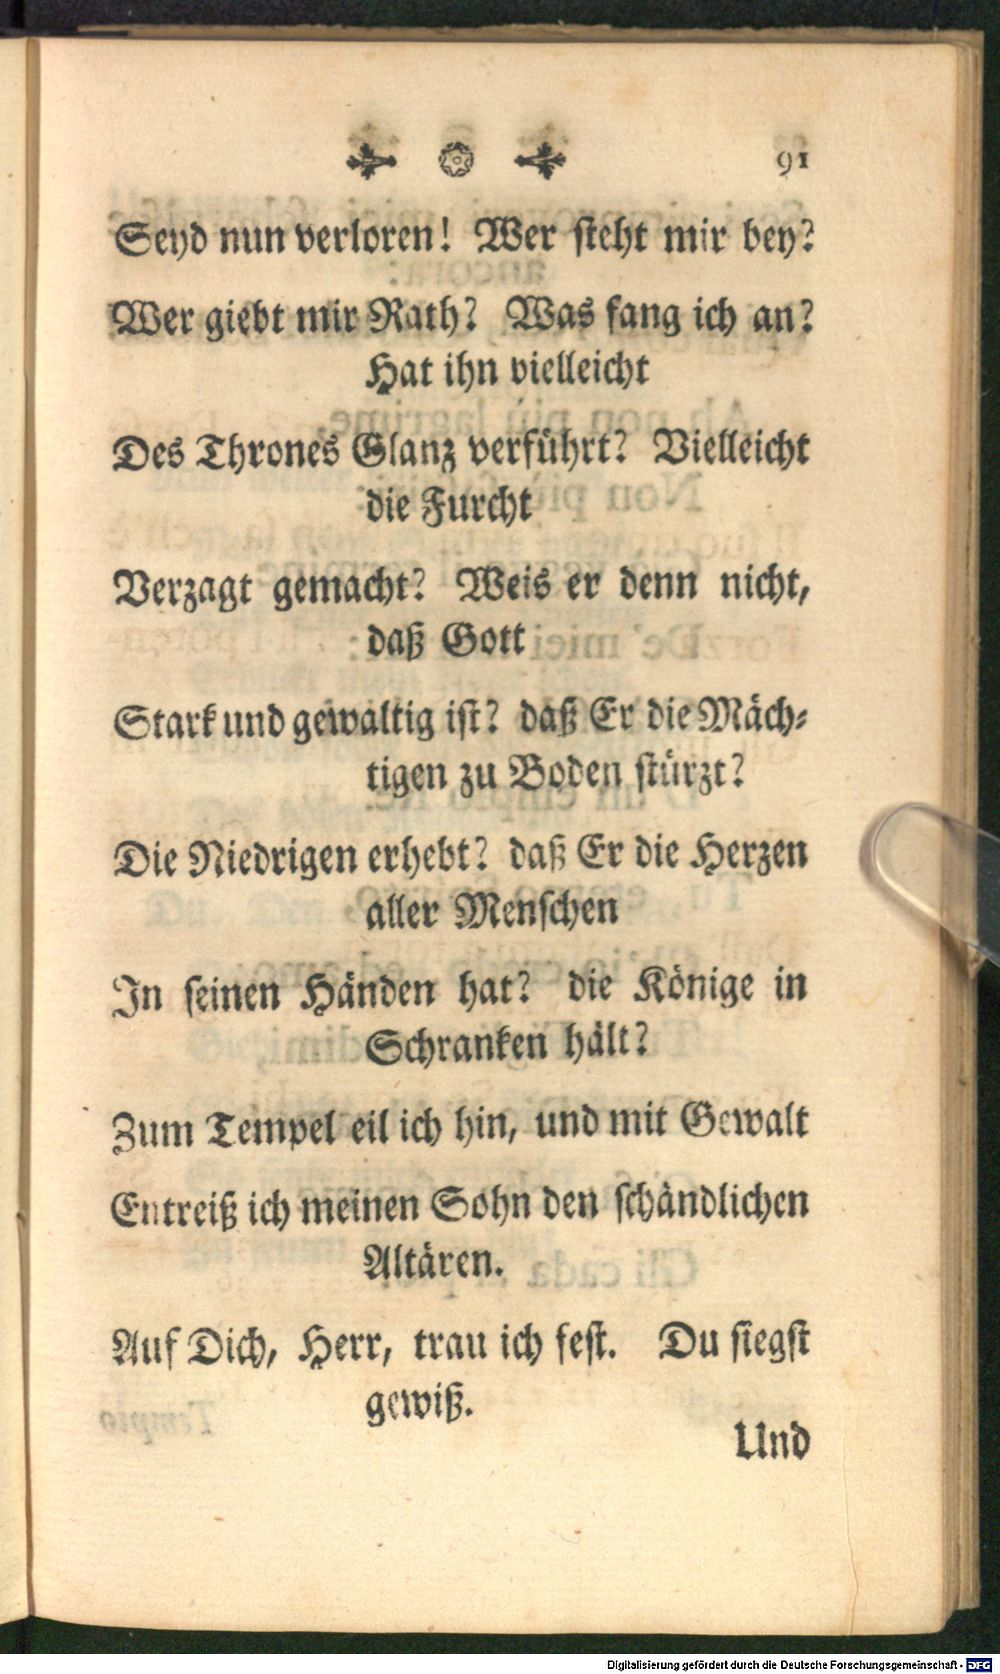 91
Seyd nun verloren! Wer steht mir bey?
Wer giebt mir Rath? Was fang ich an?
Hat ihn vielleicht
Des Thrones Glanz verführt? Vielleicht
die Furcht
Verzagt gemacht? Weis er denn nicht,
daß Gott
Stark und gewaltig ist? daß Er die Mäch-
tigen zu Boden stürzt?
Die Niedrigen erhebt? daß Er die Herzen
aller Menschen
In seinen Händen hat? die Könige in
Schranken hält?
Zum Tempel eil ich hin, und mit Gewalt
Entreiß ich meinen Sohn den schändlichen
Altären.
Auf Dich, Herr, trau ich fest. Du siegst
gewiß.
Und
Digitalisierung gefördert durch die Deutsche Forschungsgemeinschaft - DFG